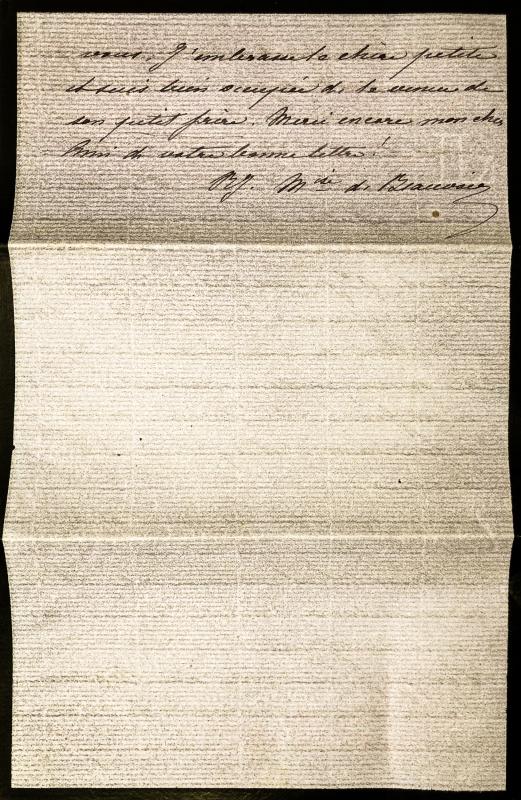 vous. J'embrasse la chère petite
et suis bien occupée de la venue de
son petit frère. Merci encore mon cher
Ami de votre bonne lettre!
M^ise de Beauvoir